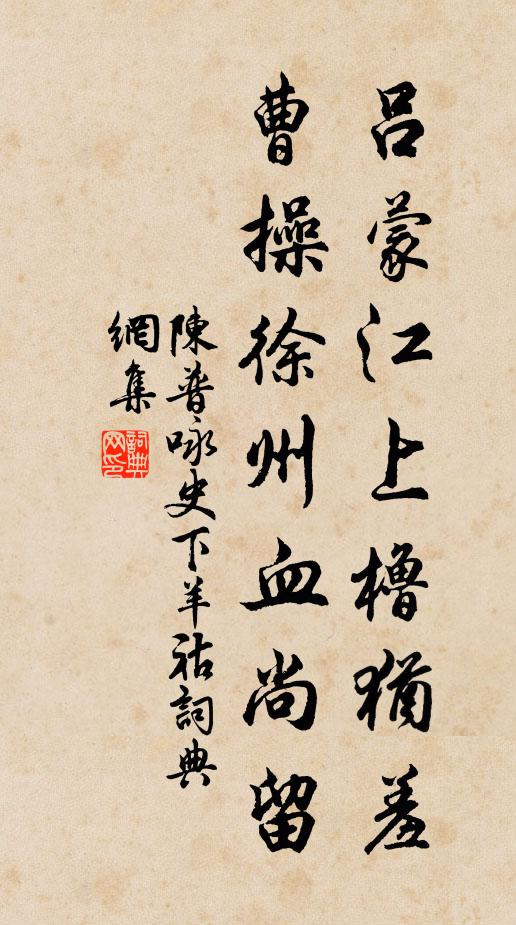 呂蒙江上櫓猶羞
曹操徐州血尚留
陳普咏史下羊祜詞典
網集
詞典
网印